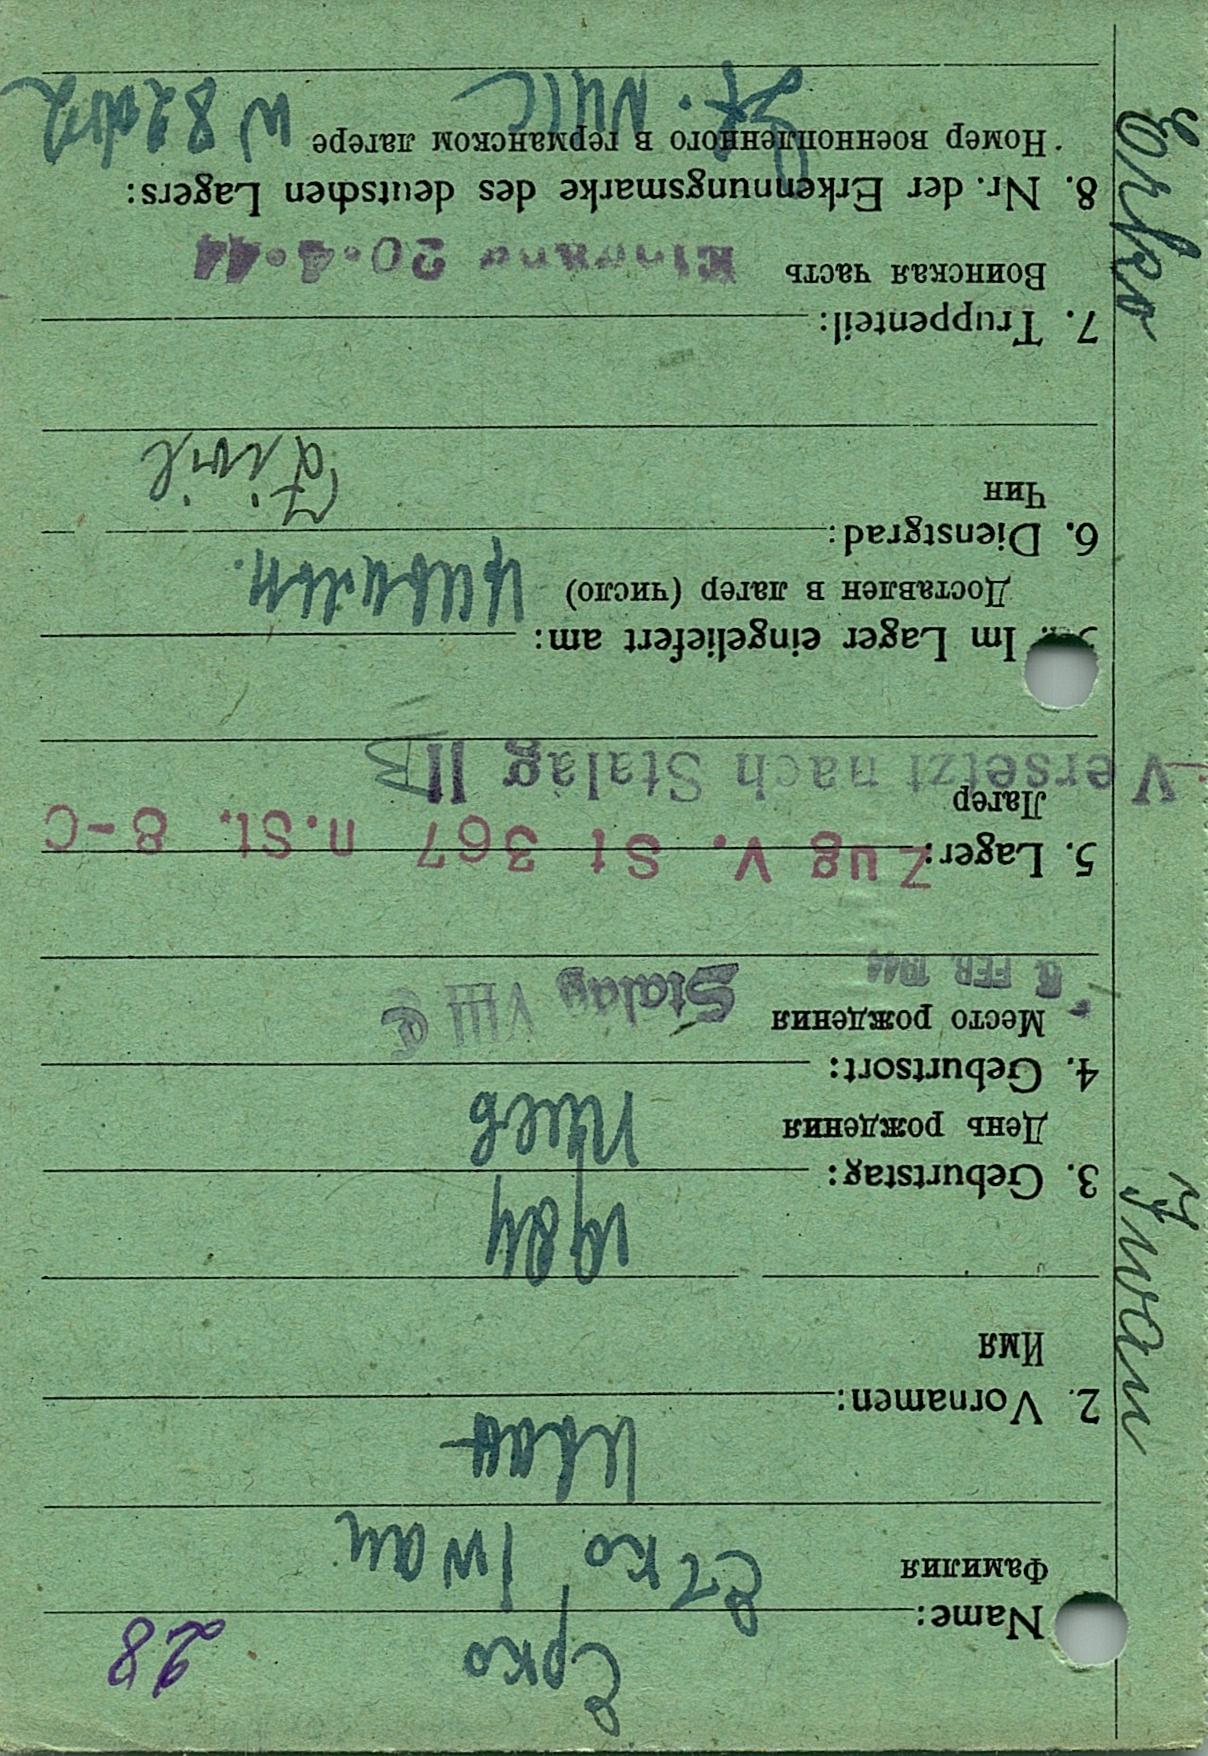 28
Ерко
Name:
Фамилия Erko Iwan
Иван
2. Vornamen:
Имя
1924
3. Geburtstag:
День рождения Киев
4. Geburtsort:
Место рождения Stalag VIII C
FEB. 1944
5. Lager: Zug v. St 367 n. St. 8-C
Лагер
Versetzt nach Stalag II B
Im Lager eingeliefert am:
Доставлен в лагер (число)
6. Dienstgrad:
Чин Zivil
7. Truppenteil:
Воинская часть 20.4.44
8. Nr. der Erkennungsmarke des deutschen Lagers:
Номер военнопленного в германском лагере
St. VIII C
Erko
Iwan